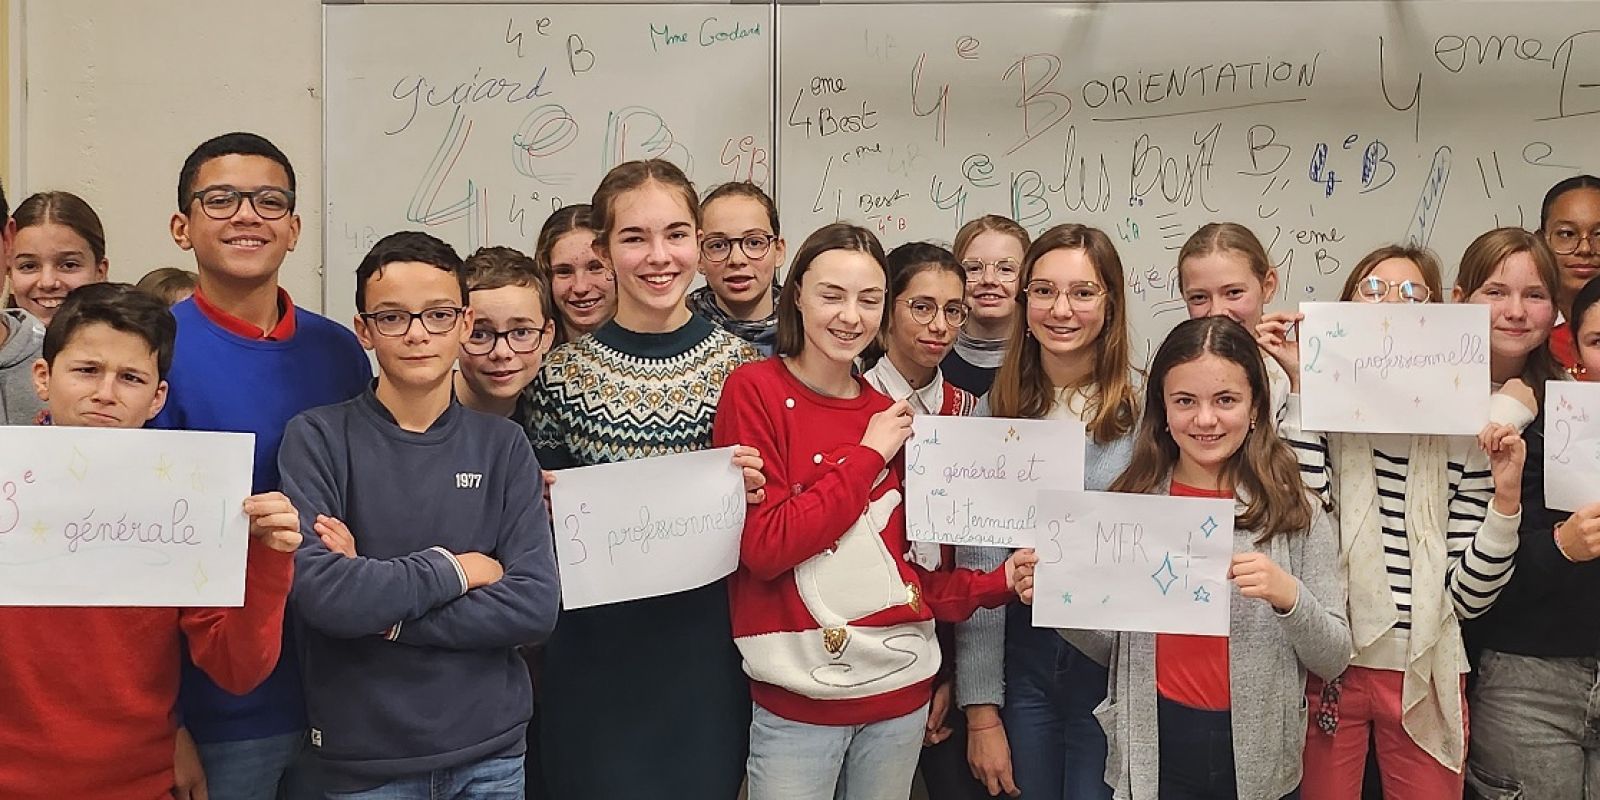 4e B
Mme Godard
4e B
4e B
4e B
4eme
Best
4e B
ORIENTATION
4eme
4eme
Best
4e B
4e B
les Best
B
4e B
4eme
B
1977
3e
générale !
3e professionnelle
2nde
générale et
1ere et terminale
technologique
3e MFR
2nde
professionnelle
2nde